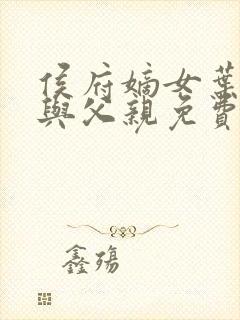 侯府嫡女葉
與父親免費
鑫殤